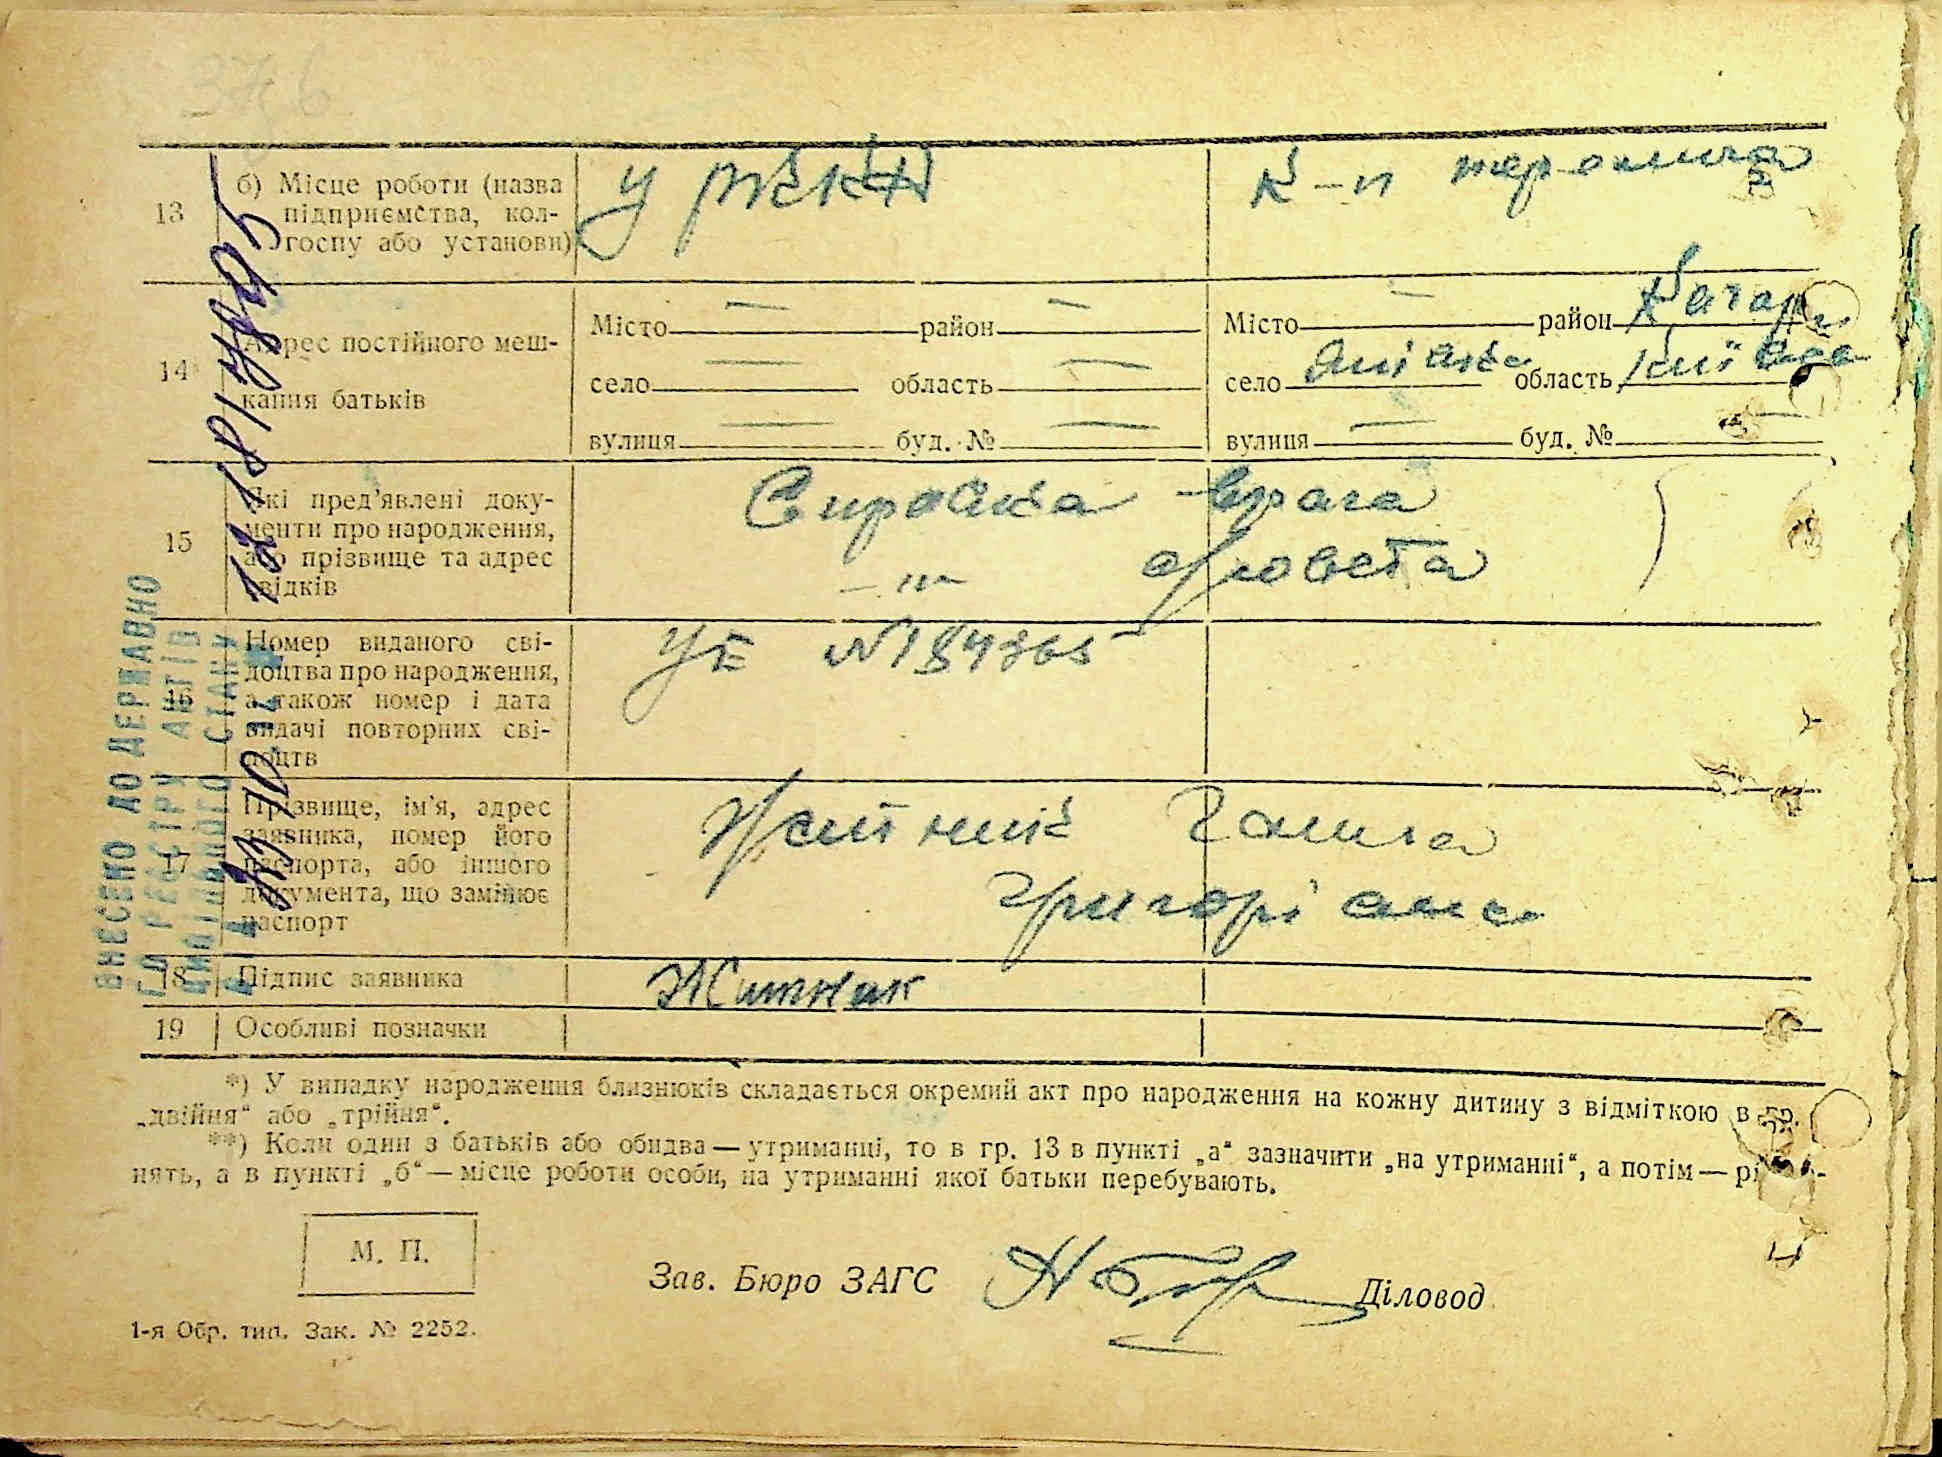 13 б) Місце роботи (назва у РККА к-п
підприємства, кол-
госпу або установи)
14 Адрес постійного меш-
кання батьків
Місто — район — Місто — район Кагарл.
село — область — село область Київська
вулиця — буд. № — вулиця — буд. № —
15 Які пред'явлені доку- Справка врача
менти про народження,
або прізвище та адрес —"— с/совета
свідків
16 Номер виданого сві- УЕ №184365
доцтва про народження,
а також номер і дата
видачі повторних сві-
доцтв
17 Прізвище, ім'я, адрес Житник Галина
заявника, номер його
паспорта, або іншого Григорівна
документа, що замінює
паспорт
18 Підпис заявника Житник
19 Особливі позначки
ВНЕСЕНО ДО ДЕРЖАВНО
ГО РЕЄСТРУ АКТІВ
ЦИВІЛЬНОГО СТАНУ
*) У випадку народження близнюків складається окремий акт про народження на кожну дитину з відміткою в гр.
„двійня“ або „трійня“.
**) Коли один з батьків або обидва — утриманці, то в гр. 13 в пункті „а“ зазначити „на утриманні“, а потім —
нять, а в пункті „б“ — місце роботи особи, на утриманні якої батьки перебувають.
М. П.
Зав. Бюро ЗАГС Діловод
1-я Обр. тип. Зак. № 2252.